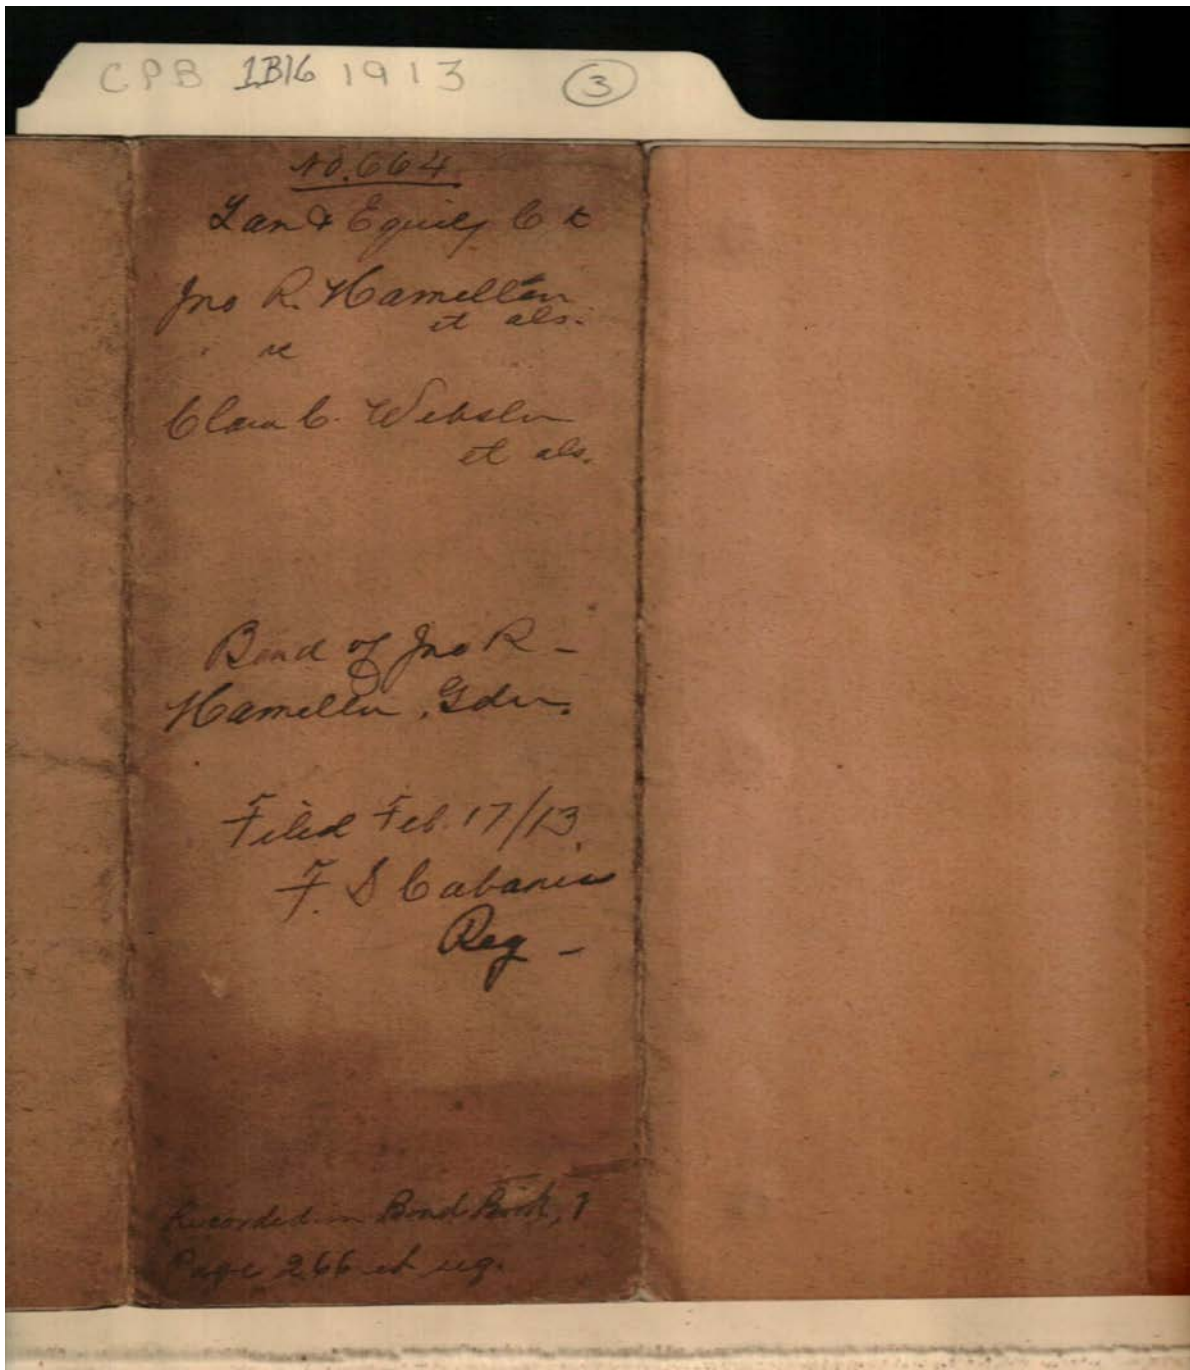 CPB 1B16 1913 3
No. 664
Law & Equity Ct
Jno R. Hamelten
et als.
vs
Clara C. Webster
et als.
Bond of Jno R -
Hamelten, Gdn.
Filed Feb. 17/13.
F. S Cabaniss
Reg -
Recorded in Bond Book, 7
Page 266 et seq.